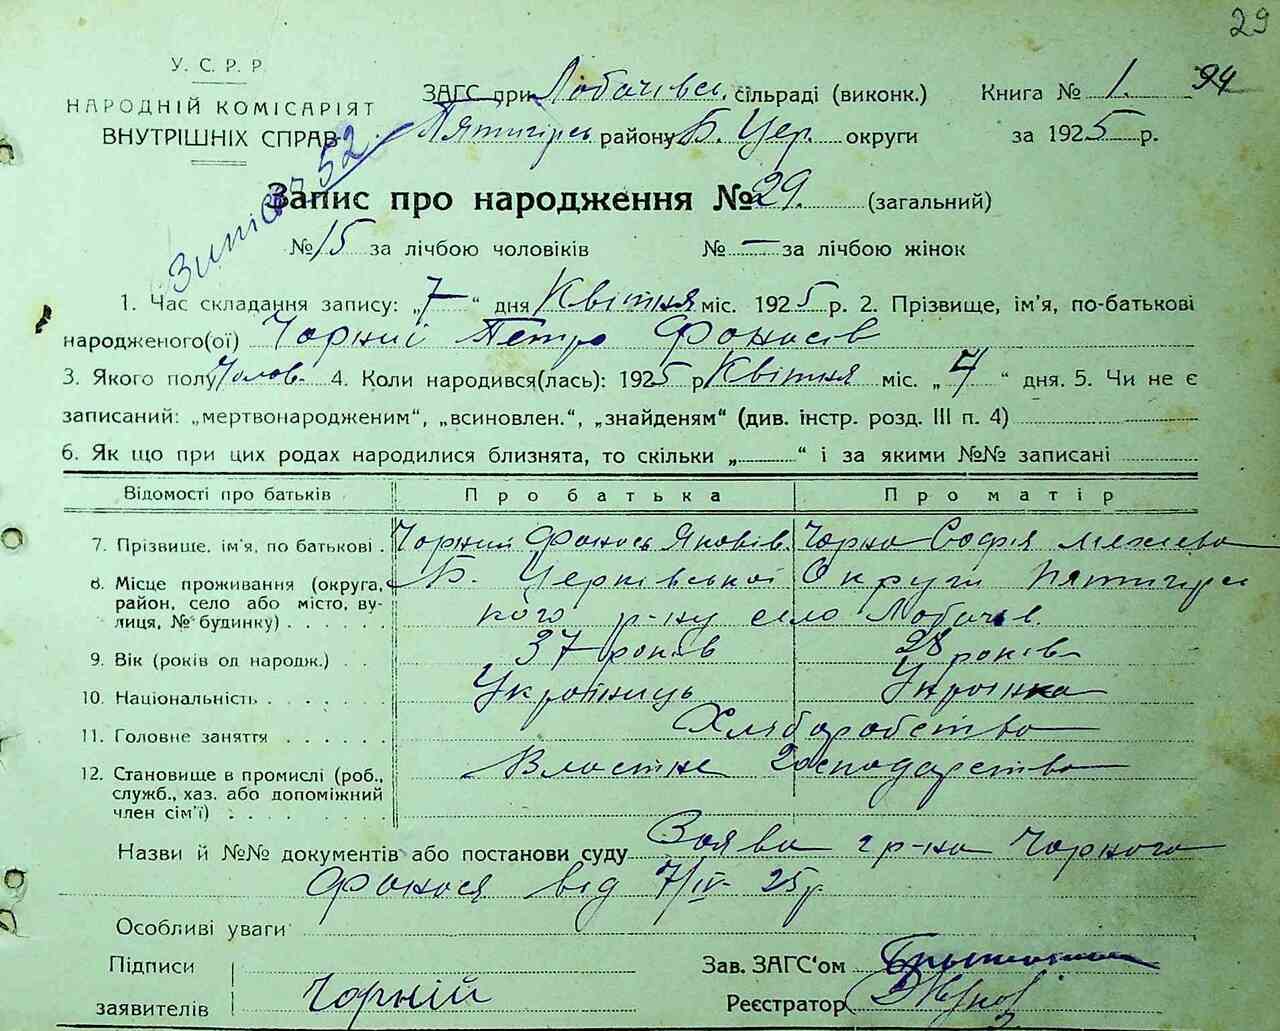 29
У. С. Р. Р
НАРОДНІЙ КОМІСАРІЯТ
ВНУТРІШНІХ СПРАВ
ЗАГС при Лобачівсь. сільраді (виконк.) Книга № 1. 94
Пятигірсь району Б. Цер. округи за 1925 р.
52
Запис про народження № 29. (загальний)
№ 15 за лічбою чоловіків № — за лічбою жінок
1. Час складання запису: „7" дня Квітня міс. 1925 р. 2. Прізвище, ім'я, по-батькові
народженого(ої) Чорний Петро Фонасів
3. Якого полу Чолов. 4. Коли народився(лась): 1925 р Квітня міс. „7" дня. 5. Чи не є
записаний: „мертвонародженим", „всиновлен.", „знайденям" (див. інстр. розд. III п. 4)
6. Як що при цих родах народилися близнята, то скільки „ " і за якими №№ записані
Відомості про батьків Про батька Про матір
7. Прізвище, ім'я, по батькові Чорний Фонась Яковів. Чорна Софія
8. Місце проживання (округа, район, село або місто, вулиця, № будинку) Б. Церківської Округи Пятигірсь
кого р-ну село Лобачів.
9. Вік (років од народж.) 37 років 28 років
10. Національність Українець Українка
11. Головне заняття Хліборобство
12. Становище в промислі (роб., служб., хаз. або допоміжний член сім'ї) Власне Господарство
Назви й №№ документів або постанови суду Заява гр-на Чорного
Фонася від 7/IV- 25 р.
Особливі уваги
Підписи
заявителів Чорній
Зав. ЗАГС'ом
Реєстратор